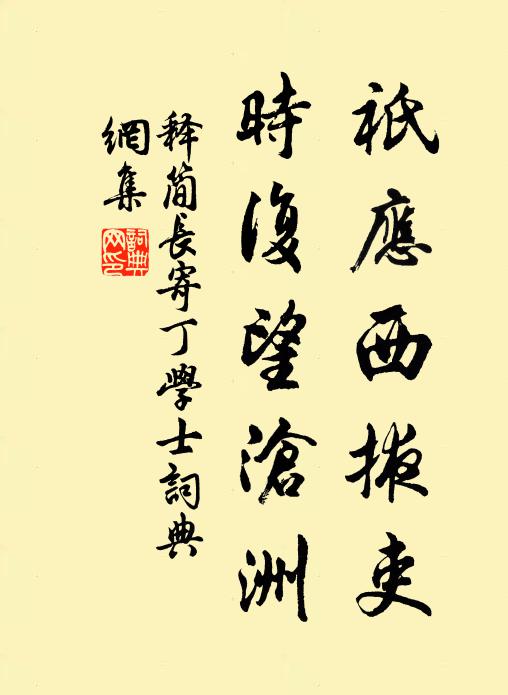 祇應西掖吏
時復望滄洲
释简長寄丁學士詞典
網集
詞典
网印